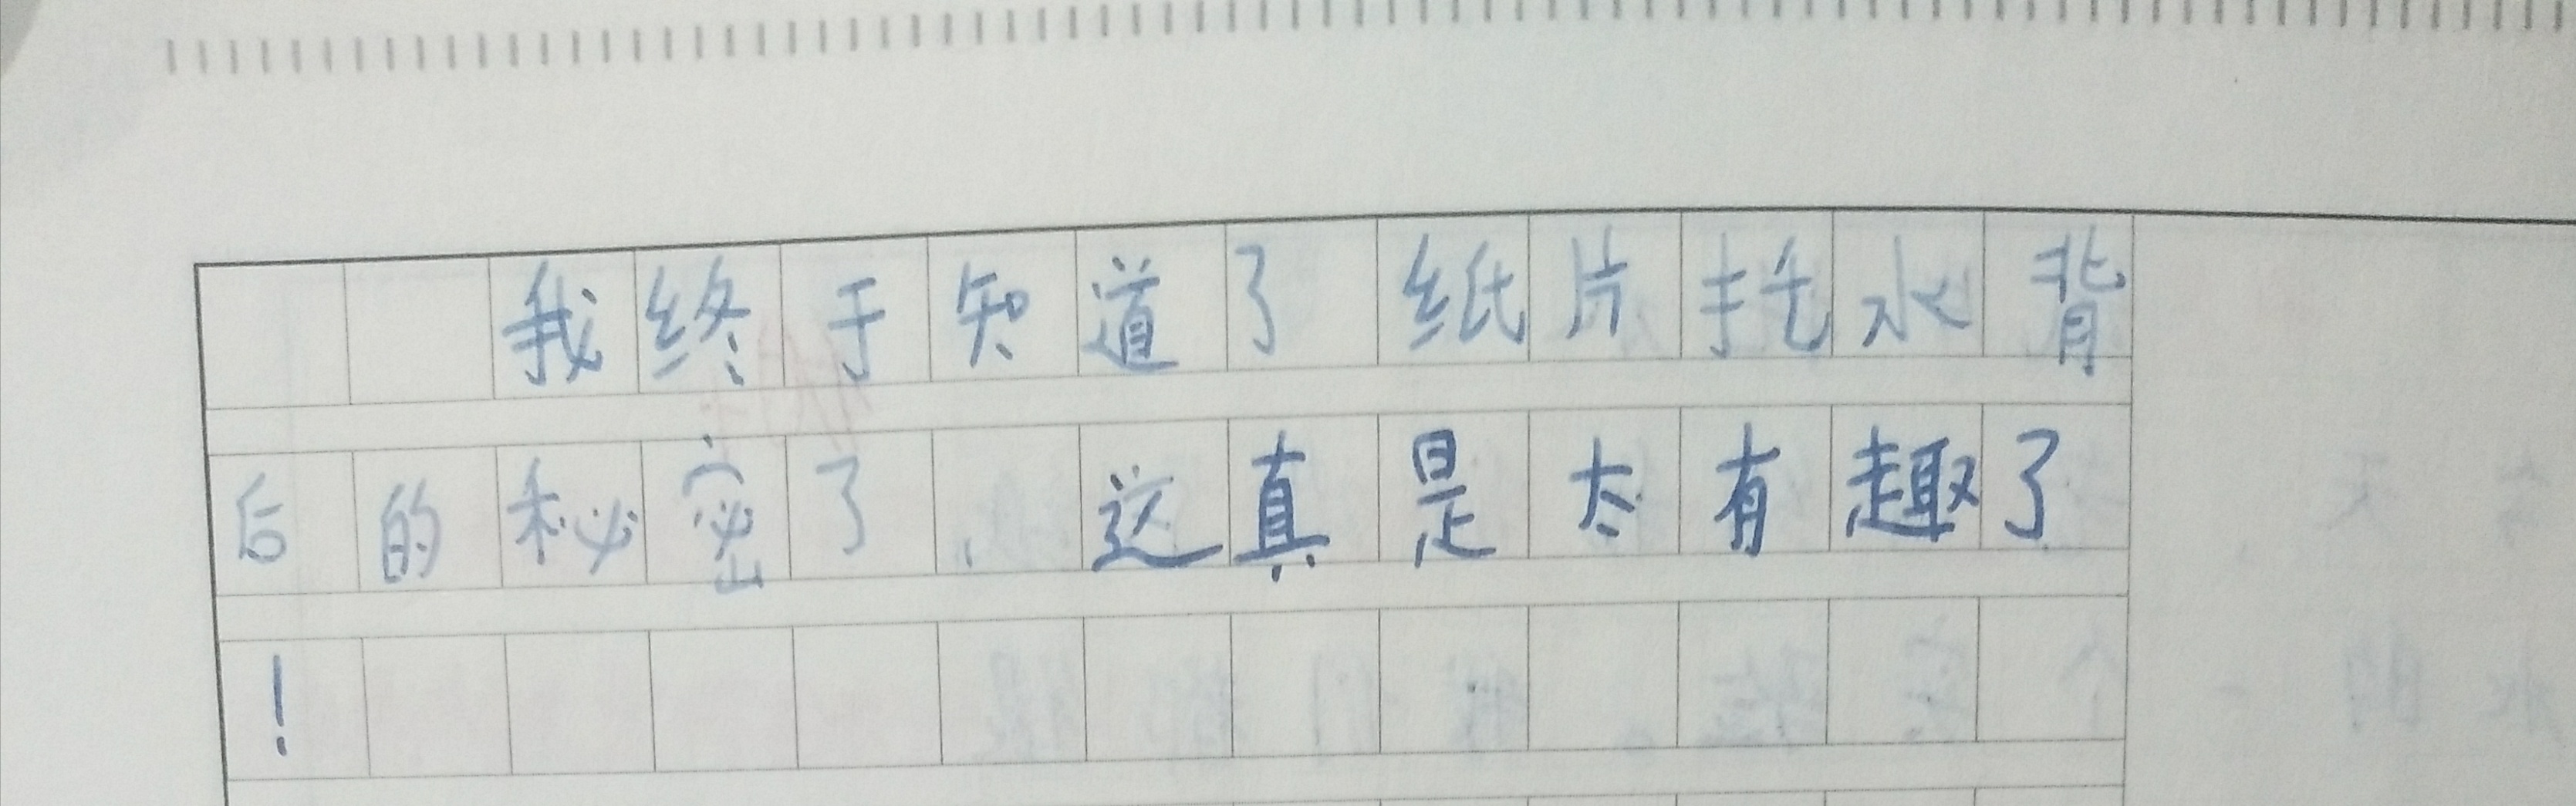 我终于知道了纸片托水背
后的秘密了，这真是太有趣了
！